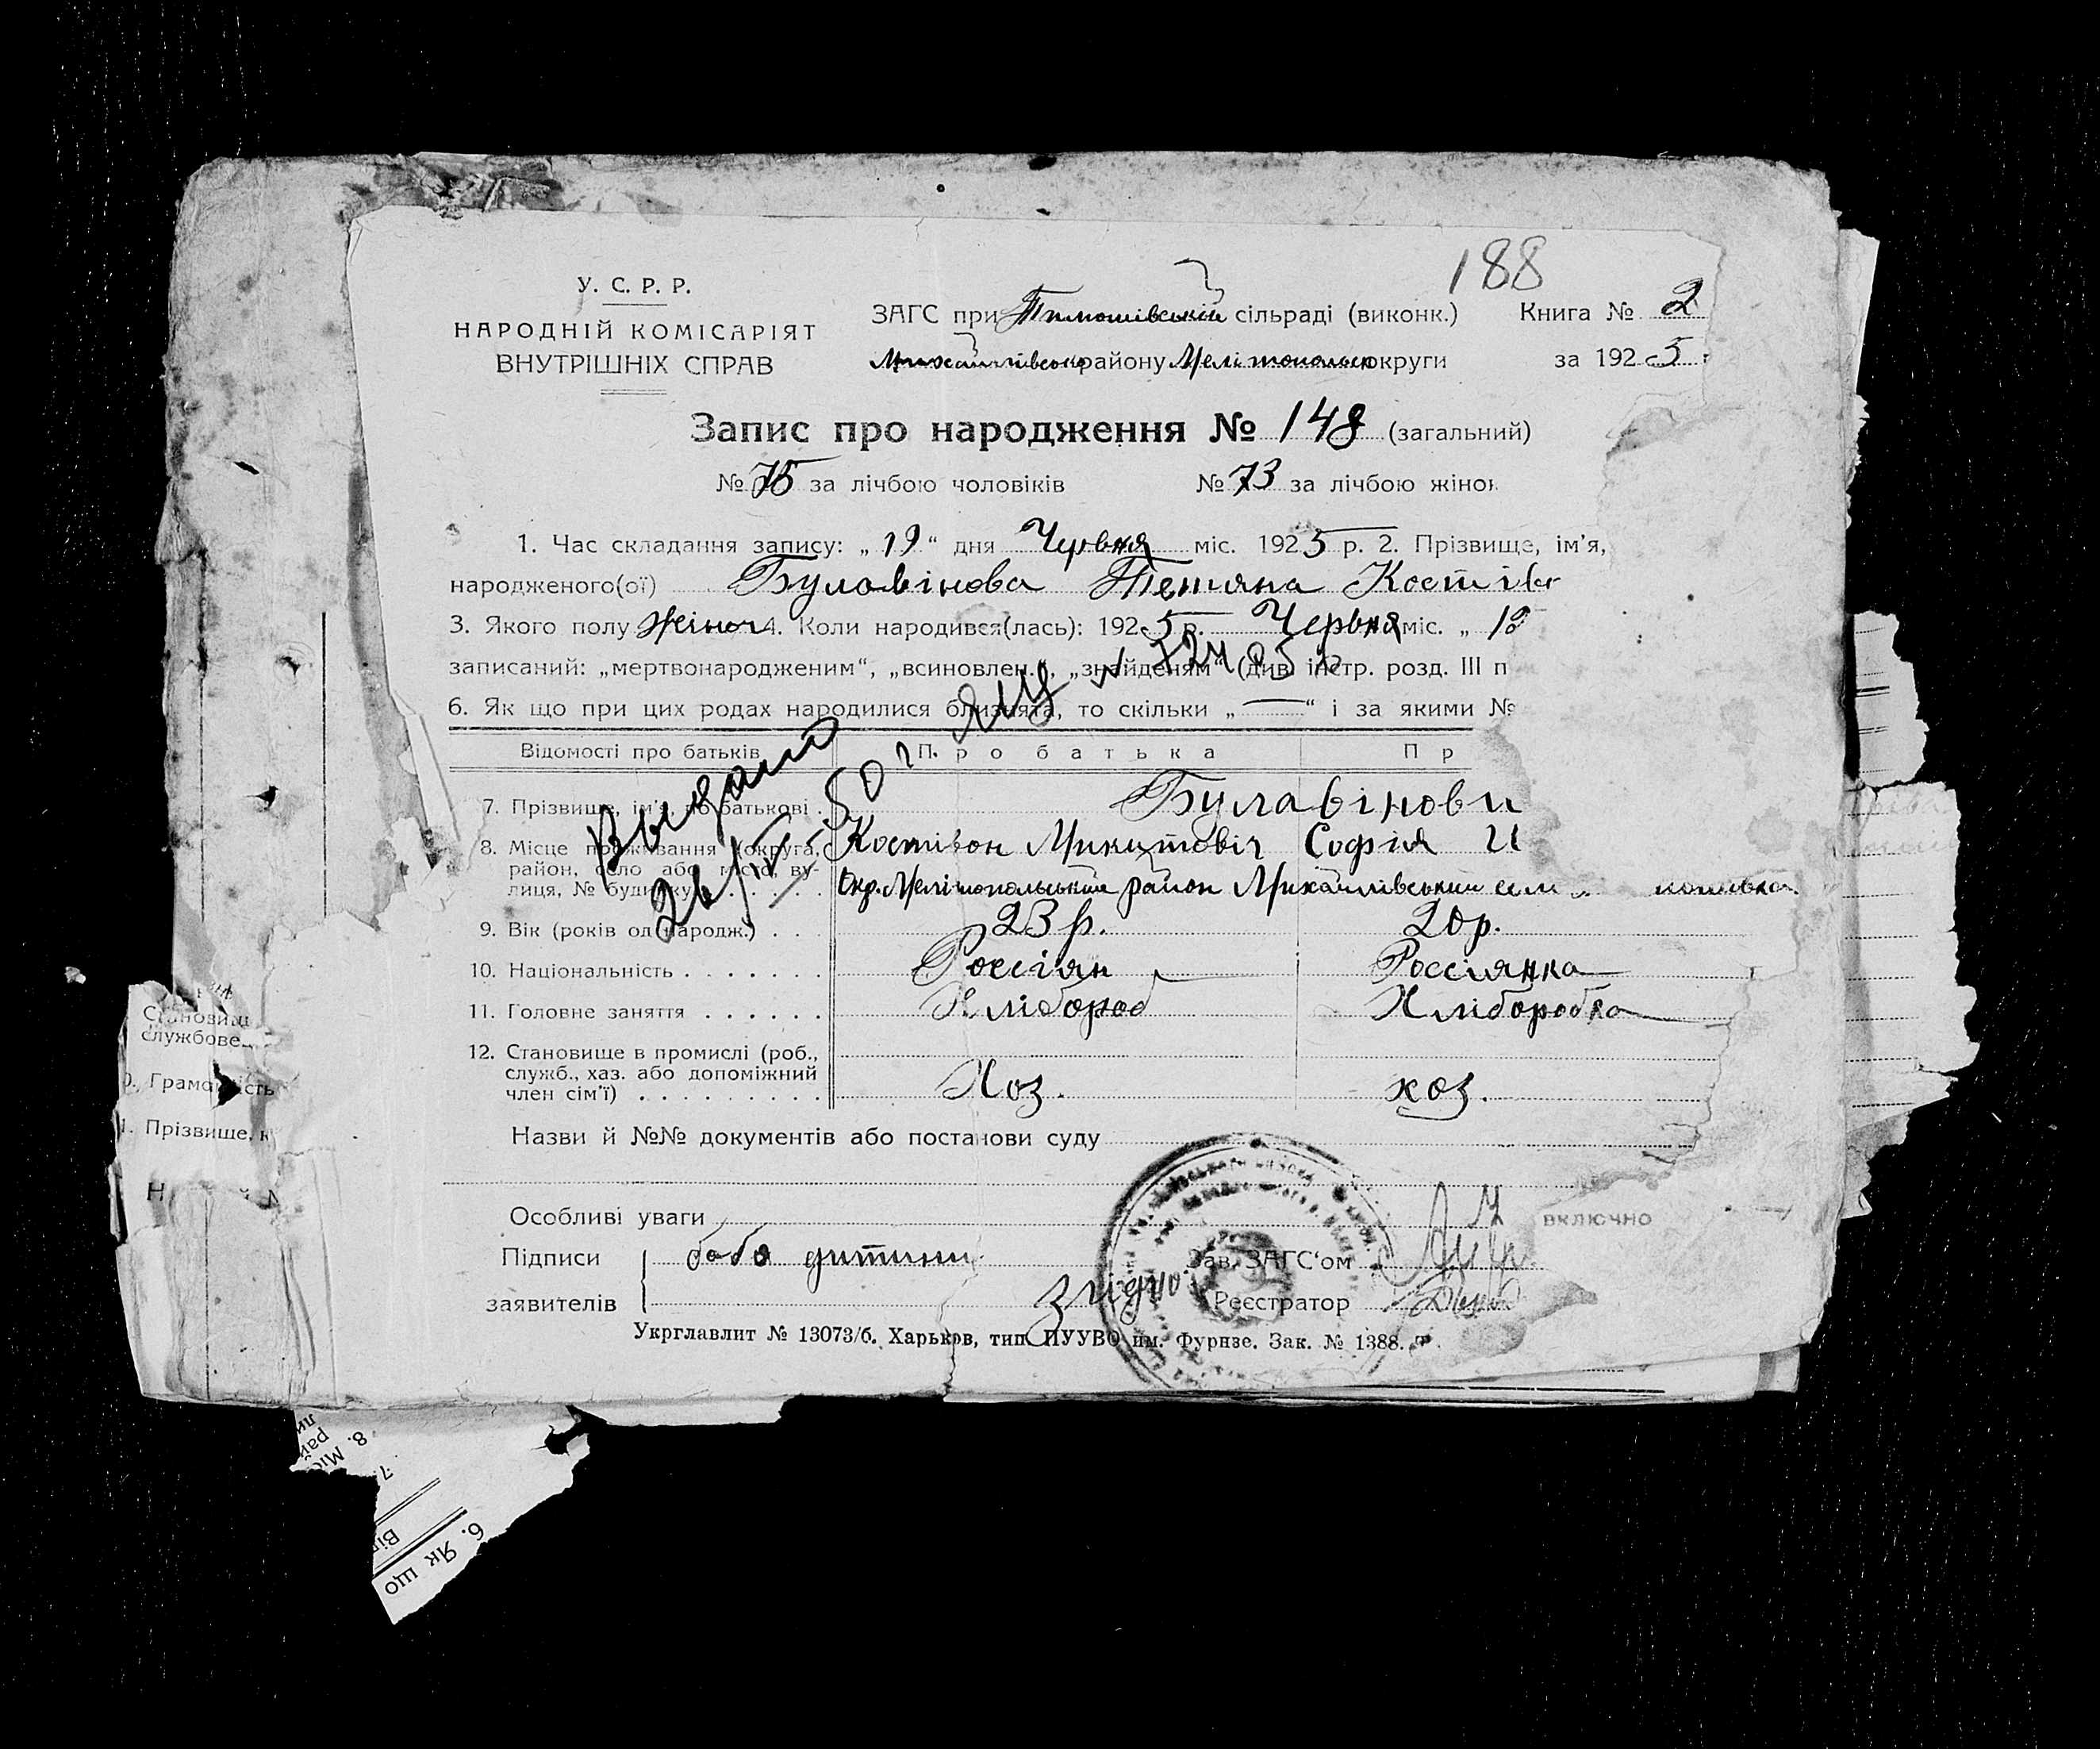 188
У. С. Р. Р.
НАРОДНІЙ КОМІСАРІЯТ
ВНУТРІШНІХ СПРАВ
ЗАГС при Тимошівській сільраді (виконк.) Книга № 2
Михайлівсько району Мелітопольск округи за 1925
Запис про народження № 148 (загальний)
№ 75 за лічбою чоловіків № 73 за лічбою жінок
1. Час складання запису: „19“ дня Червня міс. 1925 р. 2. Прізвище, ім'я,
народженого(ої) Булавінова Тетяна Костів
3. Якого полу жіноч 4. Коли народився(лась): 1925 р. Червня міс. „ 18
записаний: „мертвонародженим“, „всиновлен.“, „знайденям“ (див. інстр. розд. III п
6. Як що при цих родах народилися близнята, то скільки „—“ і за якими №
Відомості про батьків Про батька Пр
7. Прізвище, ім'я, по батькові . Булавінови
Костівон Микитовіч Софія И
8. Місце проживання (округа,
район, село або місто, ву-
лиця, № будинку) Окр. Мелітопольський район Михайлівський сели
9. Вік (років од народж.) . . . 23 р. 20 р.
10. Національність . . . . . . . Россіян Россіянка
11. Головне заняття . . . . . . Хлібороб Хліборобка
12. Становище в промислі (роб.,
служб., хаз. або допоміжний
член сім'ї) . . . . . . . . . Хоз. хоз.
Выдано
26/IV-50 г. ЯЦ № 724
Назви й №№ документів або постанови суду
Особливі уваги
включно
Підписи баба дитини Зав. ЗАГС‘ом
заявителів Згідно: Реєстратор
Укрглавлит № 13073/б. Харьков, тип. ПУУВО им. Фурнзе. Зак. № 1388. т
Становищ
службове
0. Грамотність
1. Прізвище, к
8. Міс
рай
ли
7.
Від
6. Як що